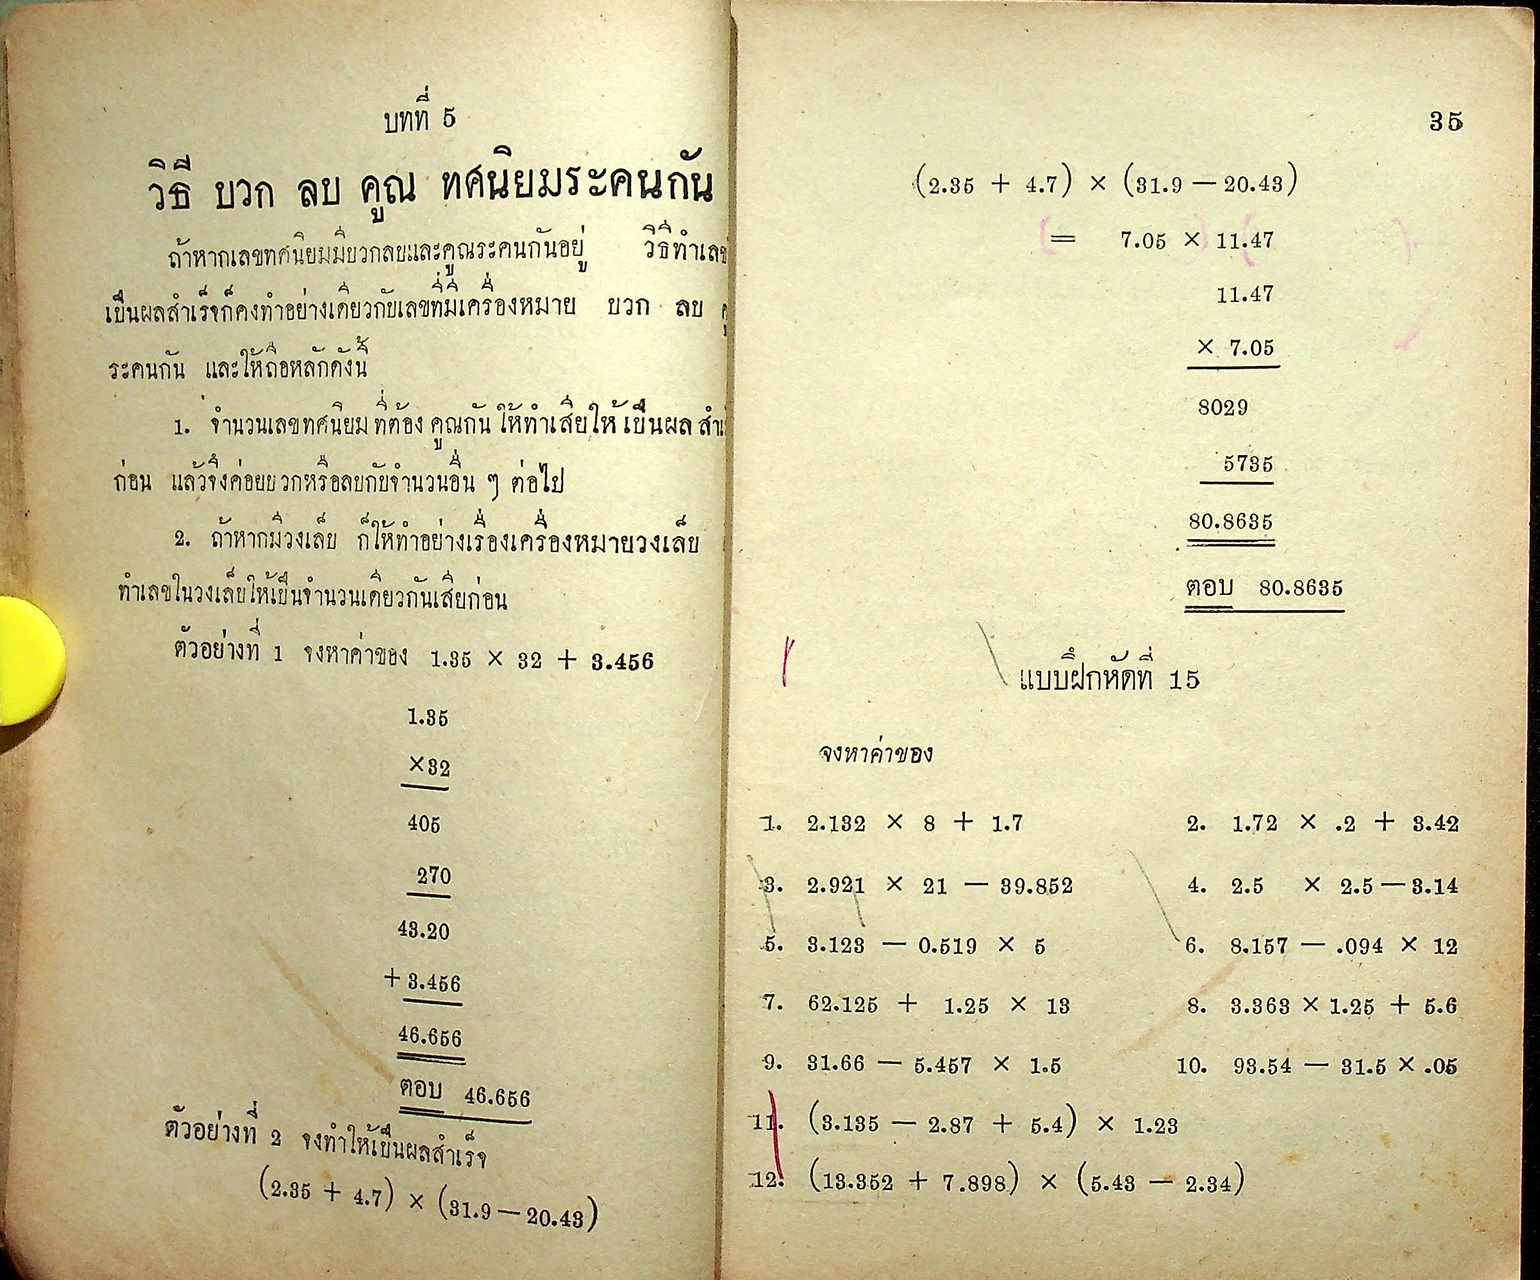 บทที่ 5
วิธี บวก ลบ คูณ ทศนิยมระคนกัน
ถ้าหากเลขทศนิยมมีบวกลบและคูณระคนกันอยู่ วิธีทำเลข
เป็นผลสำเร็จก็คงทำอย่างเดียวกับเลขที่มีเครื่องหมาย บวก ลบ
ระคนกัน และให้ถือหลักดังนี้
1. จำนวนเลขทศนิยมที่ต้องคูณกัน ให้ทำเสียให้เป็นผล
ก่อน แล้วจึงค่อยบวกหรือลบกับจำนวนอื่น ๆ ต่อไป
2. ถ้าหากมีวงเล็บ ก็ให้ทำอย่างเรื่องเครื่องหมายวงเล็บ
ทำเลขในวงเล็บให้เป็นจำนวนเดียวกันเสียก่อน
ตัวอย่างที่ 1 จงหาค่าของ 1.35 × 32 + 3.456
1.35
×32
405
270
43.20
+ 3.456
46.656
ตอบ 46.656
ตัวอย่างที่ 2 จงทำให้เป็นผลสำเร็จ
(2.35 + 4.7) × (31.9 — 20.43)
35
(2.35 + 4.7) × (31.9 — 20.43)
= 7.05 × 11.47
11.47
× 7.05
8029
5735
80.8635
ตอบ 80.8635
แบบฝึกหัดที่ 15
จงหาค่าของ
1. 2.132 × 8 + 1.7 2. 1.72 × .2 + 3.42
3. 2.921 × 21 — 39.852 4. 2.5 × 2.5 — 3.14
5. 3.123 — 0.519 × 5 6. 8.157 — .094 × 12
7. 62.125 + 1.25 × 13 8. 3.363 × 1.25 + 5.6
9. 31.66 — 5.457 × 1.5 10. 93.54 — 31.5 × .05
11. (3.135 — 2.87 + 5.4) × 1.23
12. (13.352 + 7.898) × (5.43 — 2.34)